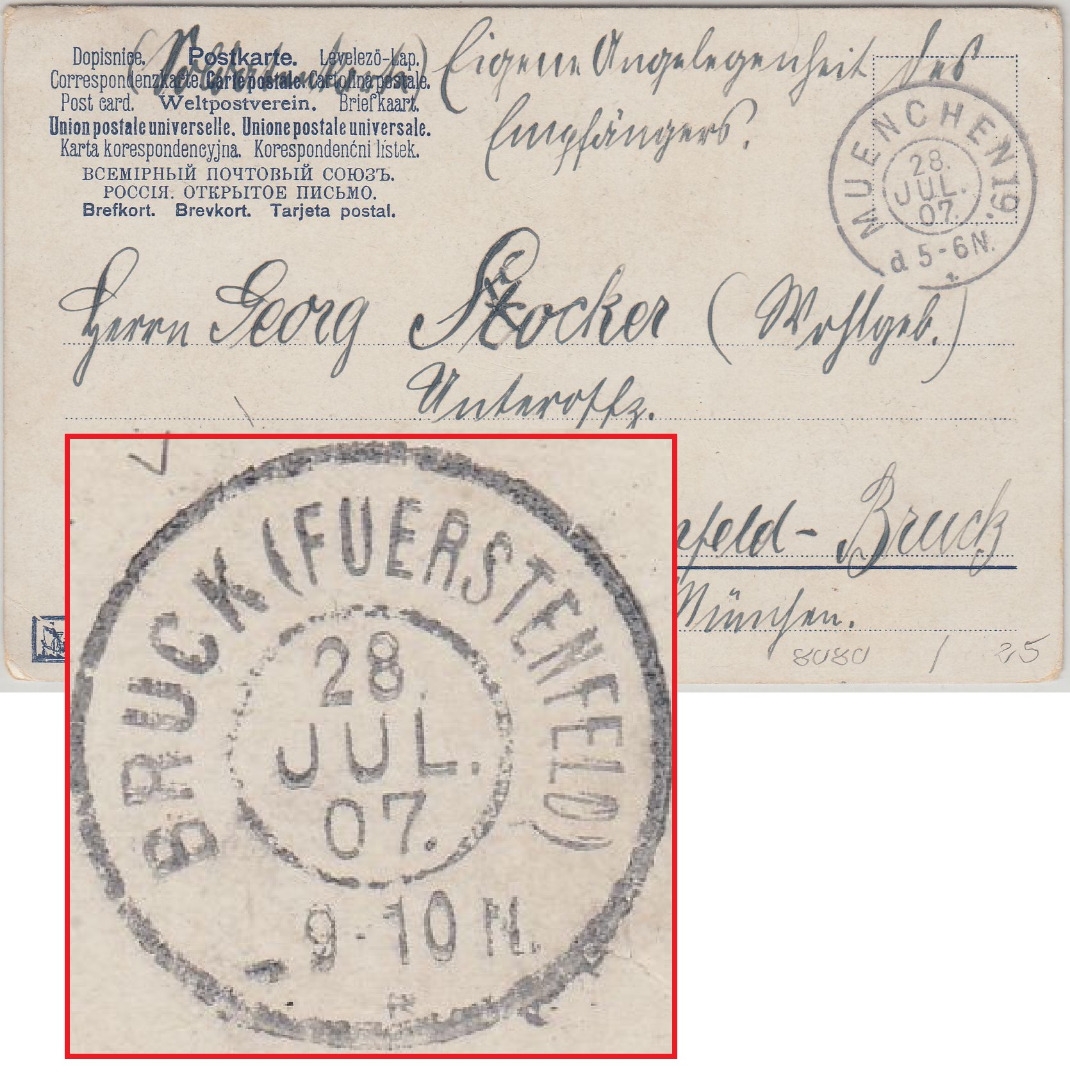 Dopisnice. Postkarte. Levelező-Lap.
Correspondenzkarte. Carte postale. Cartolina postale.
Post card. Weltpostverein. Briefkaart.
Union postale universelle. Unione postale universale.
Karta korespondencyjna. Korespondenční lístek.
ВСЕМІРНЫЙ ПОЧТОВЫЙ СОЮЗЪ.
РОССІЯ. ОТКРЫТОЕ ПИСЬМО.
Brefkort. Brevkort. Tarjeta postal.
Eigene Angelegenheit des
Empfängers.
MUENCHEN 19.
28.
JUL.
07.
d 5-6 N.
Herrn Georg Stocker (Wohlgeb.)
Unteroffz.
nfeld-Bruck
München.
8080 / 25
BRUCK (FUERSTENFELD)
28.
JUL.
07.
9-10 N.